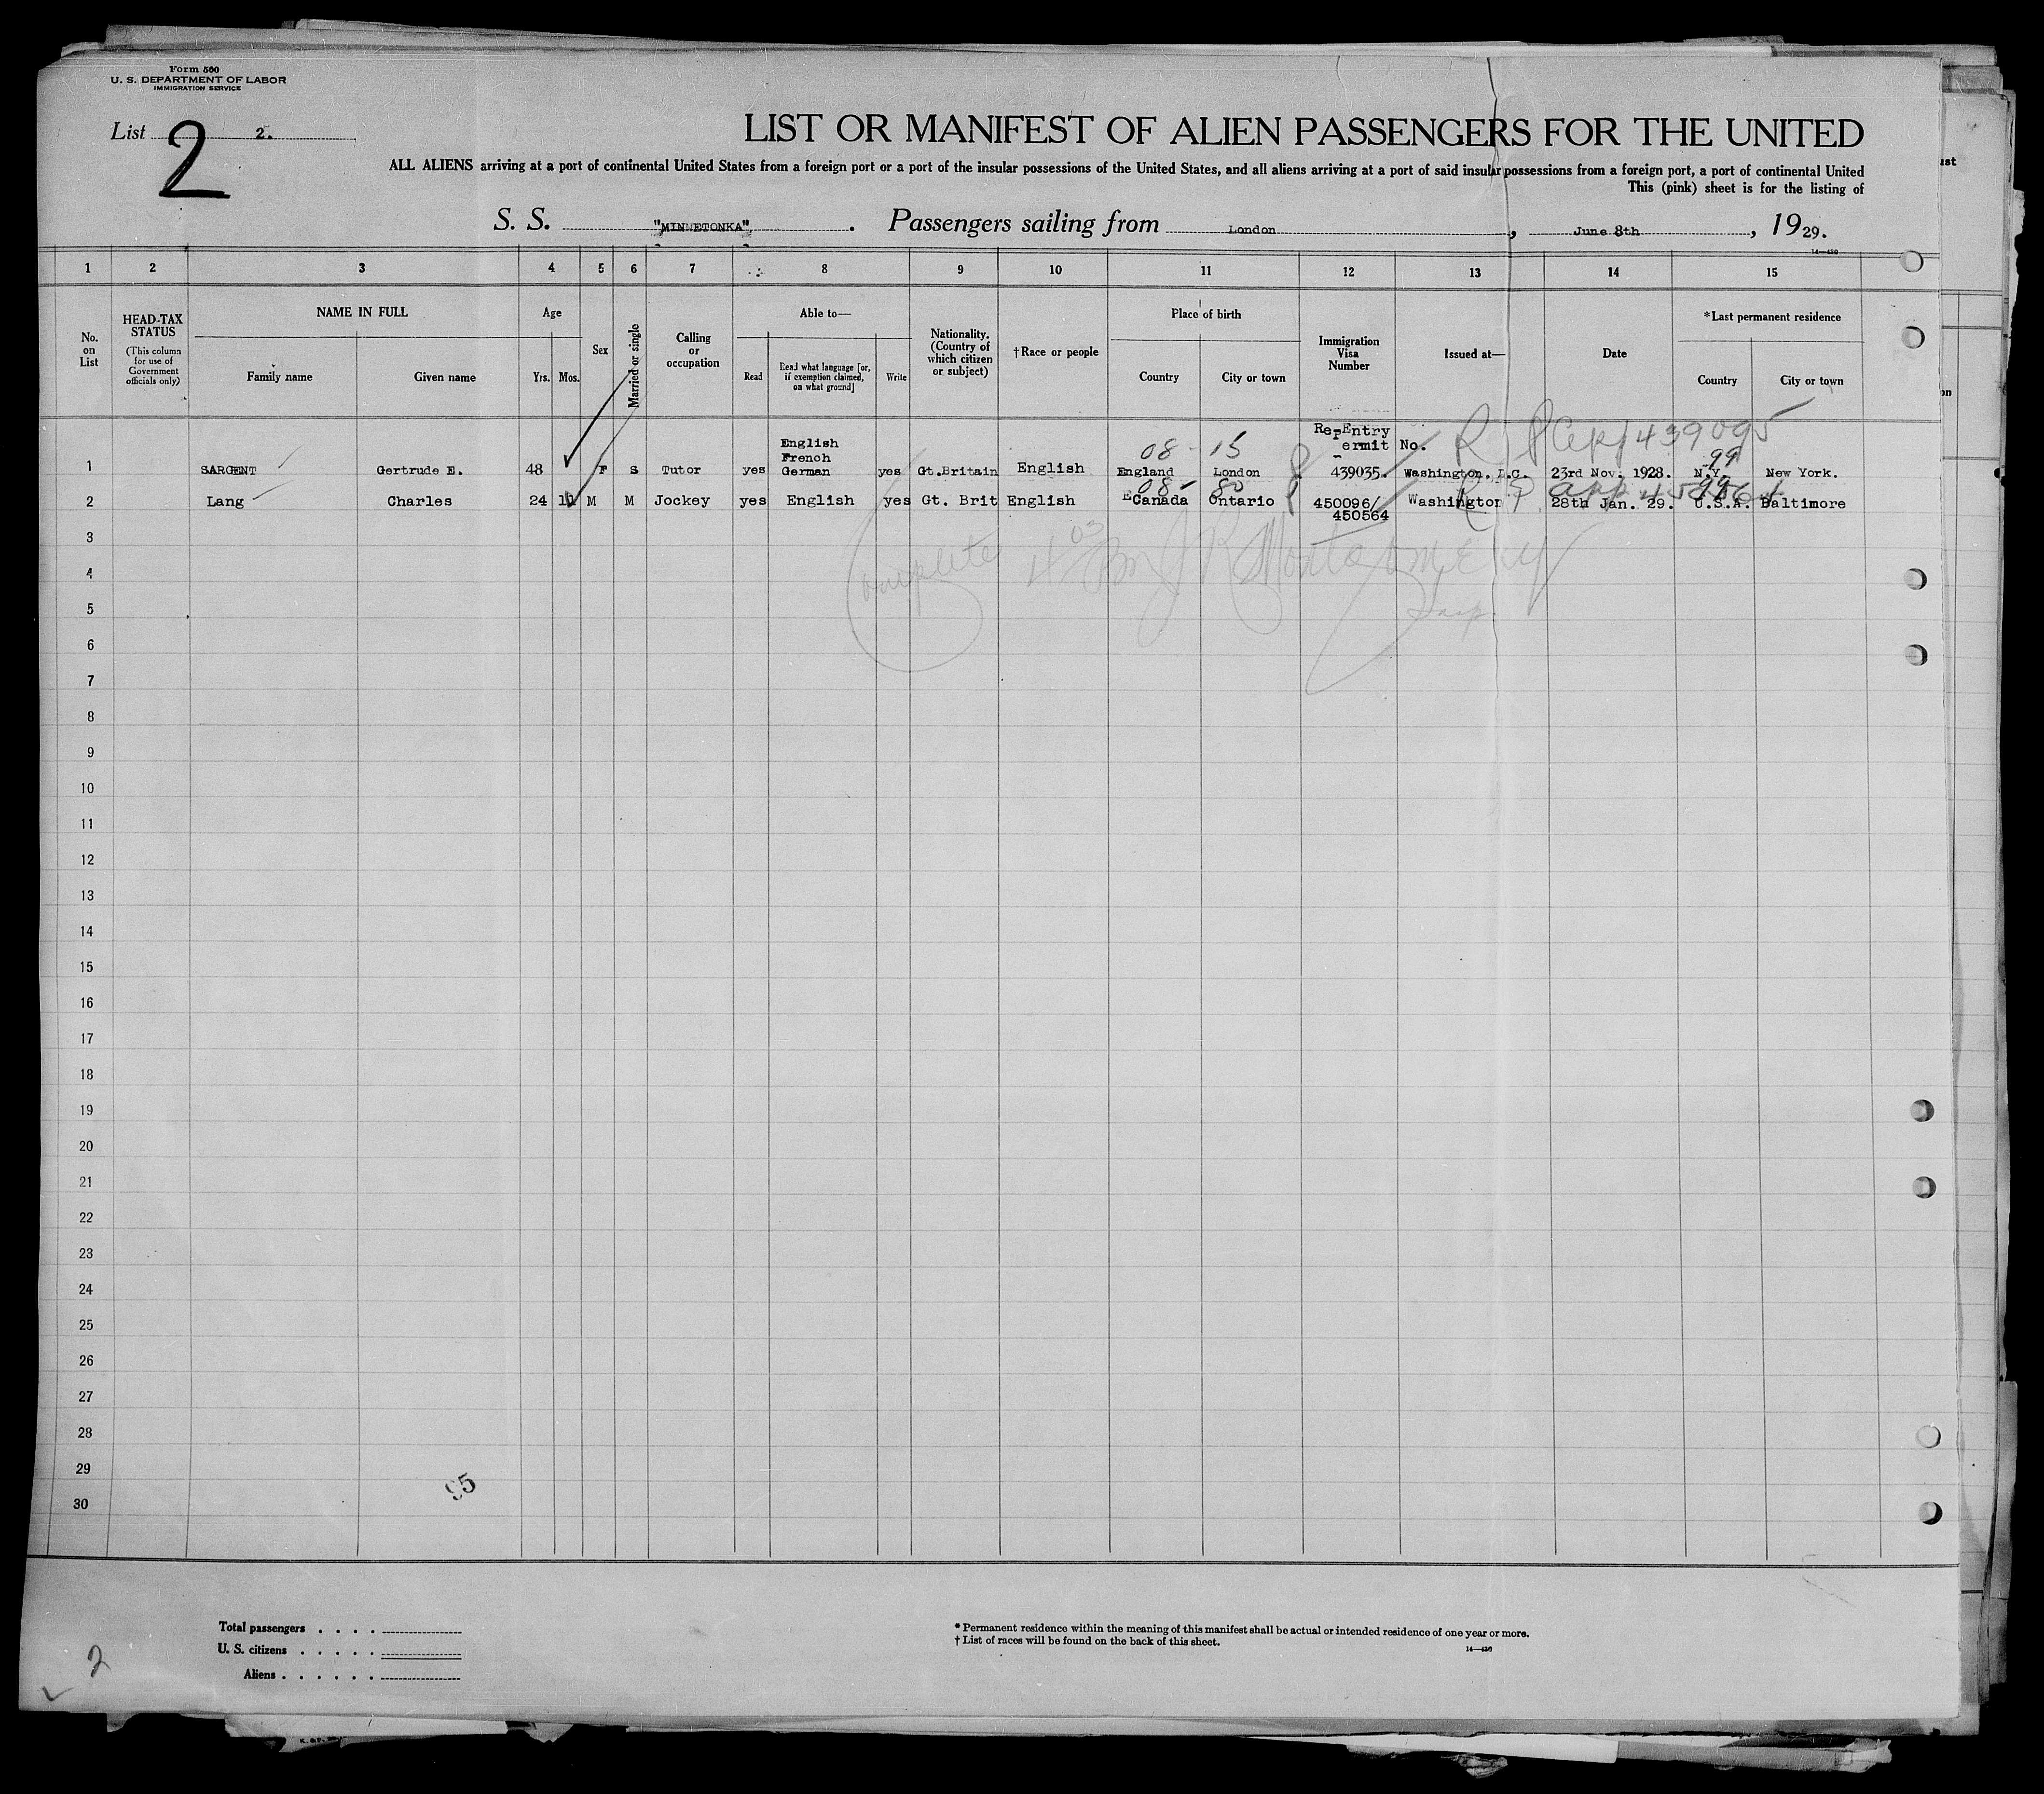 Form 500
U. S. DEPARTMENT OF LABOR
IMMIGRATION SERVICE
List 2.
2
LIST OR MANIFEST OF ALIEN PASSENGERS FOR THE UNITED
ALL ALIENS arriving at a port of continental United States from a foreign port or a port of the insular possessions of the United States, and all aliens arriving at a port of said insular possessions from a foreign port, a port of continental United
This (pink) sheet is for the listing of
S. S. "MINNETONKA". Passengers sailing from London, June 8th, 1929.
14—430
1 2 3 4 5 6 7 8 9 10 11 12 13 14 15
No. on List
HEAD-TAX STATUS
(This column for use of Government officials only)
NAME IN FULL
Family name Given name
Age
Yrs. Mos.
Sex
Married or single
Calling or occupation
Able to—
Read
Read what language [or, if exemption claimed, on what ground]
Write
Nationality. (Country of which citizen or subject)
†Race or people
Place of birth
Country City or town
Immigration Visa Number
Issued at—
Date
*Last permanent residence
Country City or town
Re-Entry
Permit No.
08 - 15
439095
99
1 SARGENT Gertrude E. 48 F S Tutor yes English French German yes Gt.Britain English England London 439035. Washington. D.C. 23rd Nov. 1928. N.Y. New York.
08 - 80
99
2 Lang Charles 24 M M Jockey yes English yes Gt. Brit English Canada Ontario 450096/ Washington 28th Jan. 29. U.S.A. Baltimore
450564
3
Complete J R Montgomery
4
Insp.
5
6
7
8
9
10
11
12
13
14
15
16
17
18
19
20
21
22
23
24
25
26
27
28
29
30
95
Total passengers . . . .
U. S. citizens . . . . .
Aliens . . . . . .
* Permanent residence within the meaning of this manifest shall be actual or intended residence of one year or more.
† List of races will be found on the back of this sheet.
14—430
2